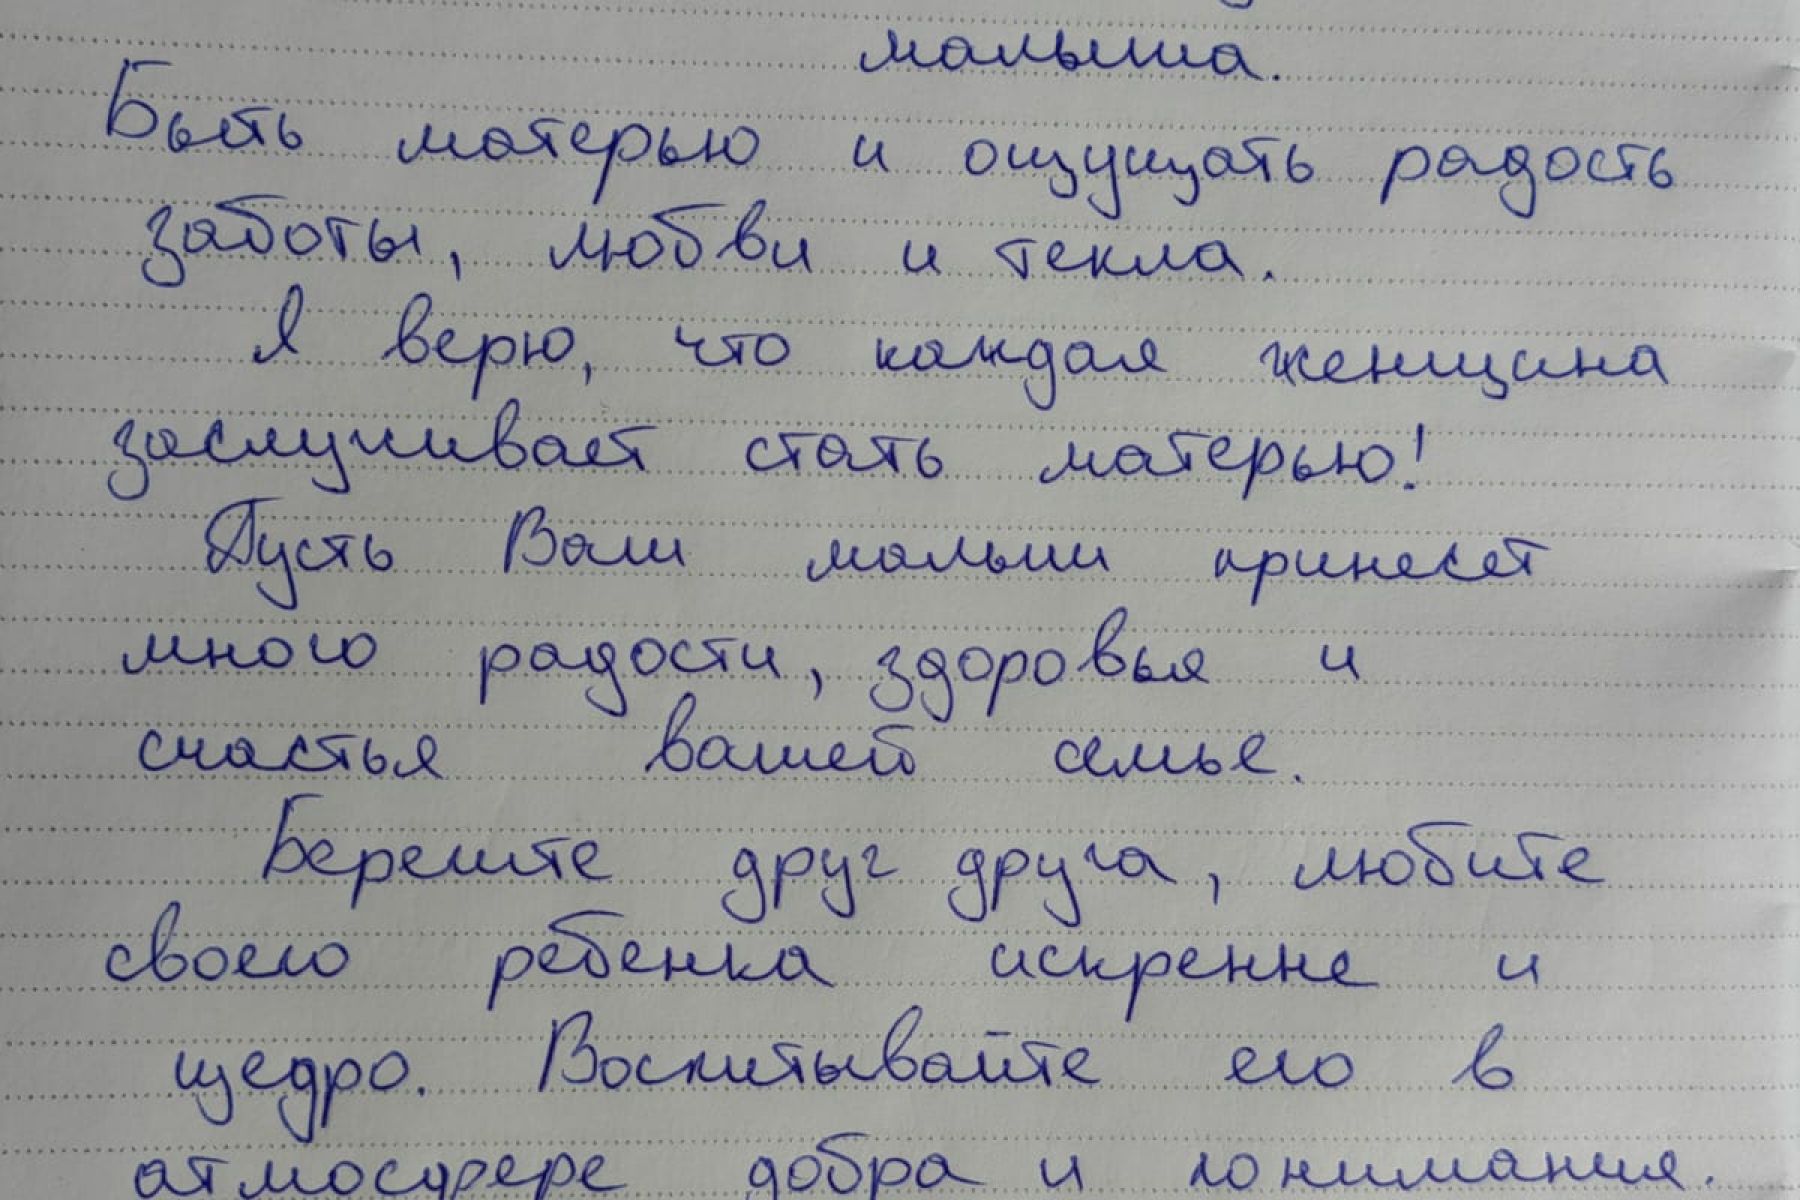 малыша.
Быть матерью и ощущать радость
заботы, любви и текла.
Я верю, что каждая женщина
заслуживает стать матерью!
Пусть Ваш малыш принесет
много радости, здоровья и
счастья вашей семье.
Берешите друг друга, любите
своего ребенка искренне и
щедро. Воспитывайте его в
атмосфере добра и понимания.